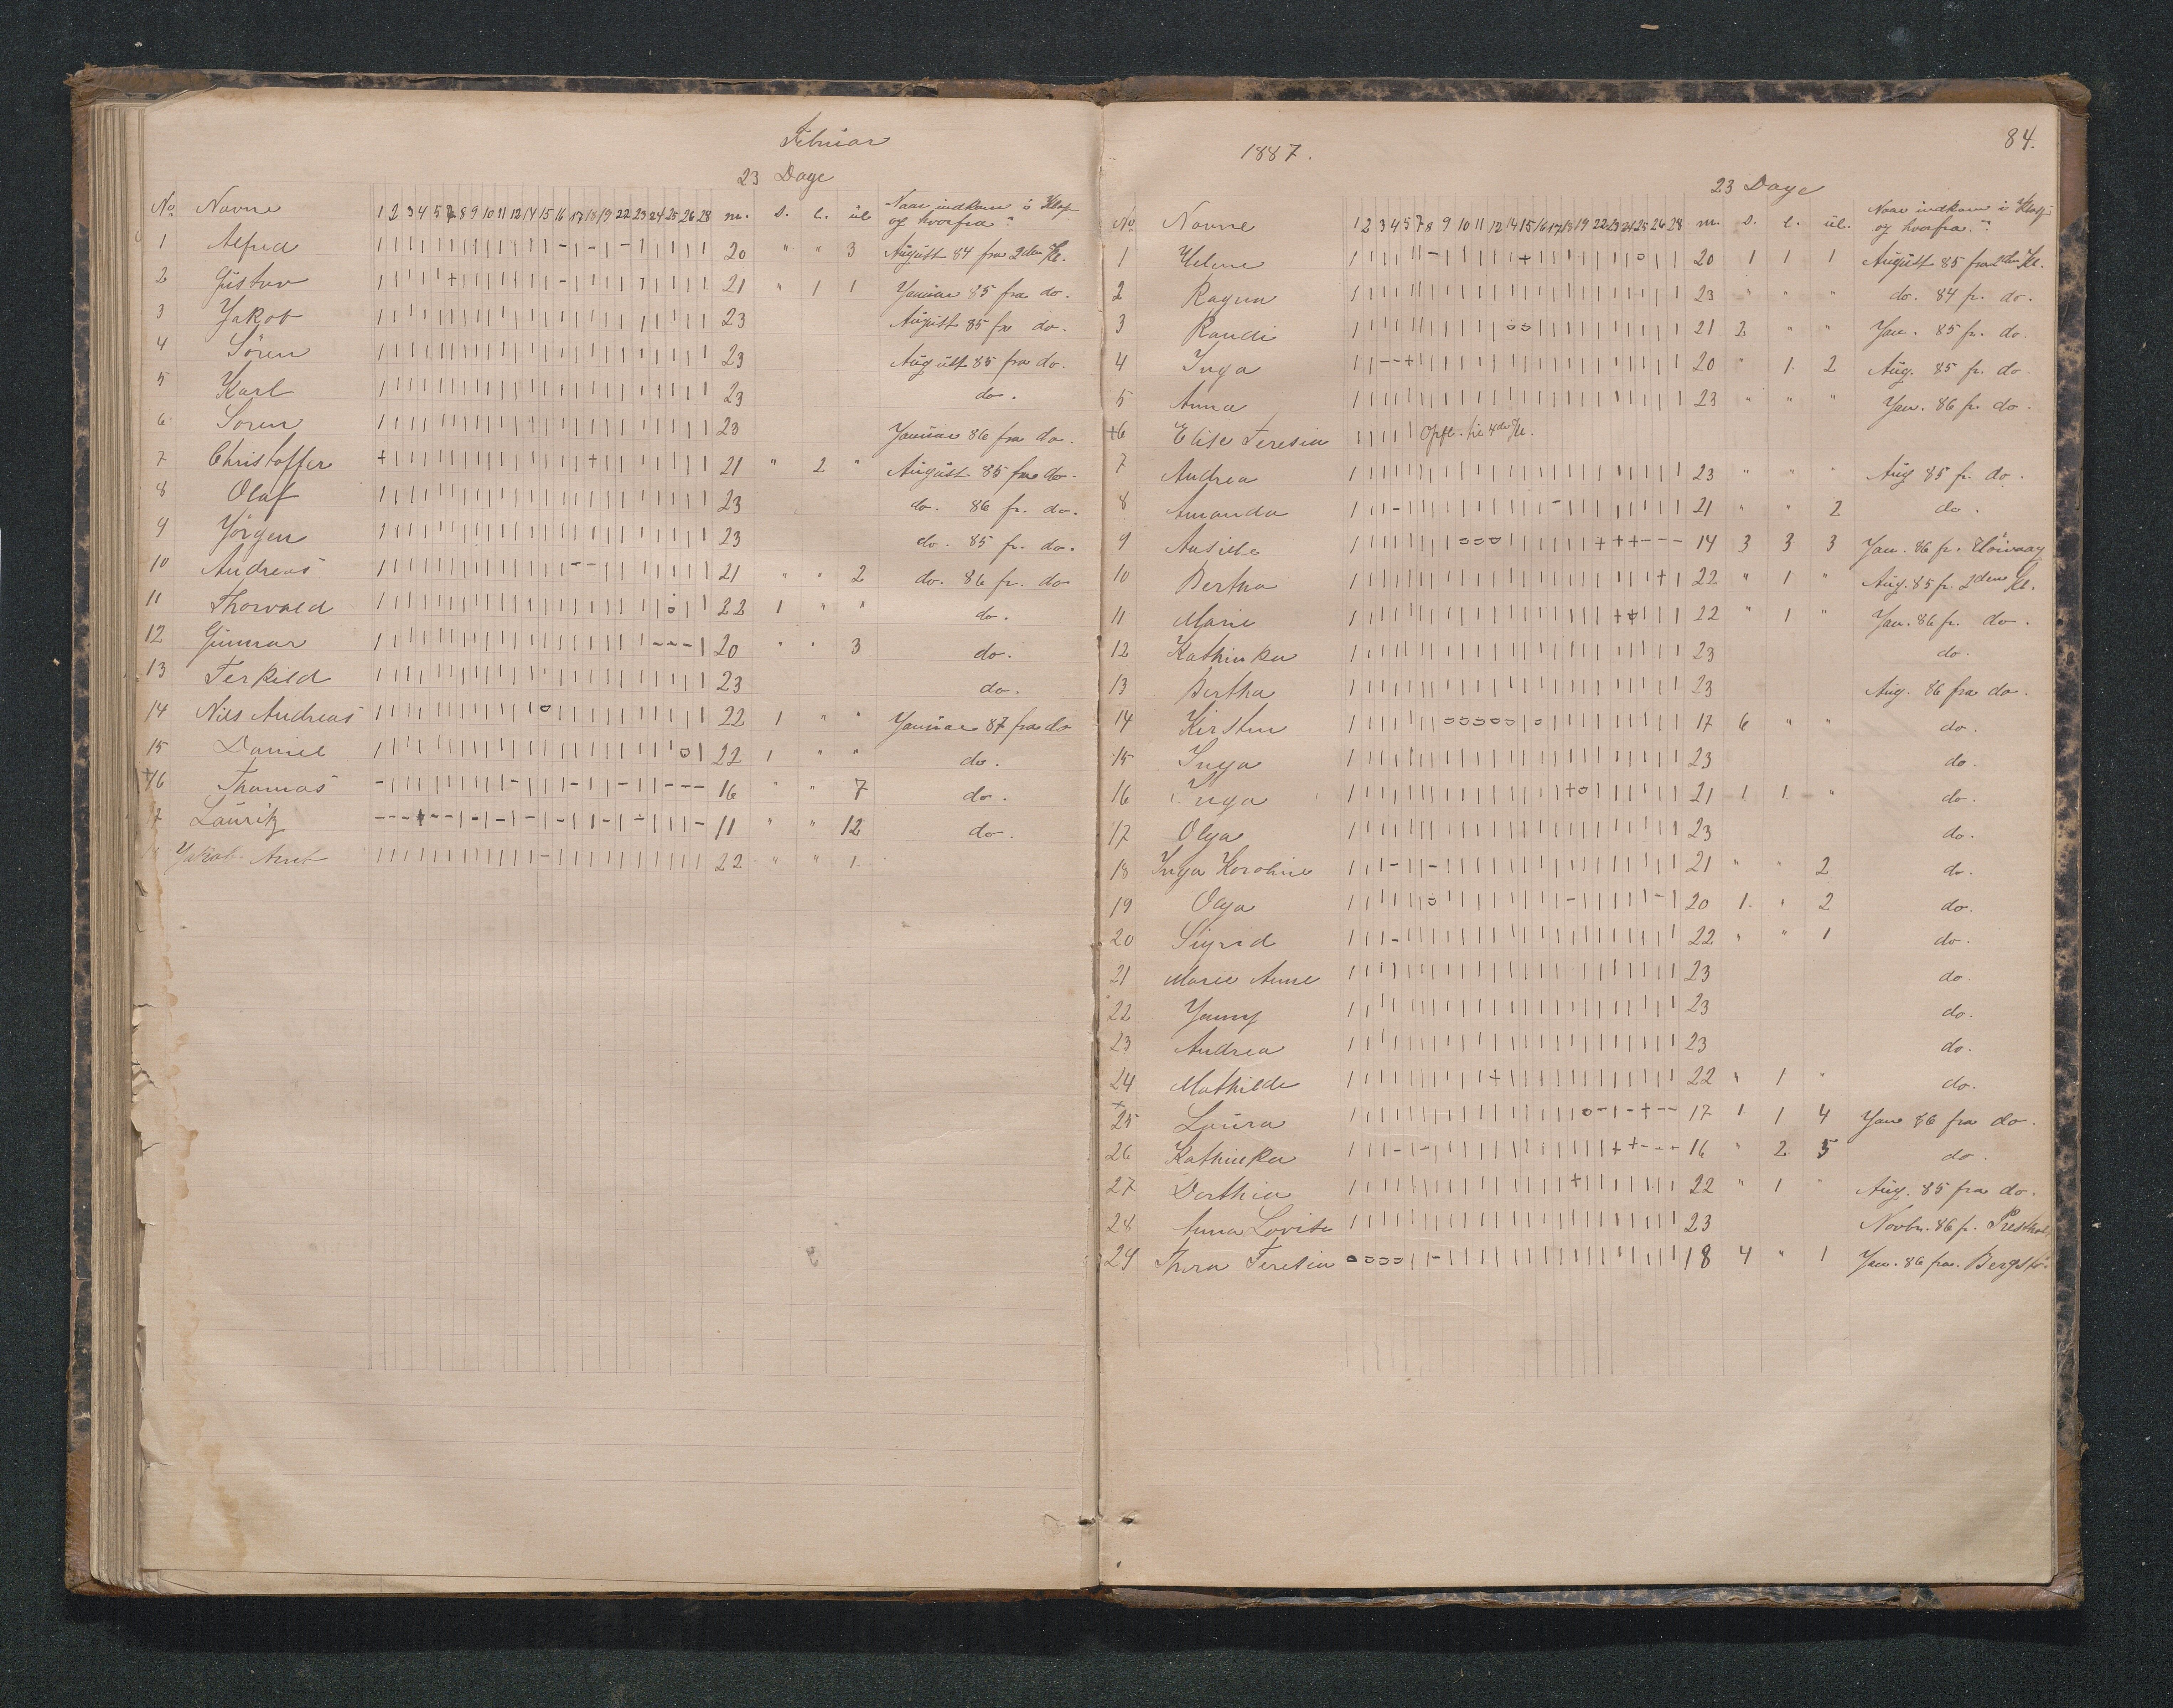 Februar
23 Dage
No Navne 1 2 3 4 5 7 8 9 10 11 12 14 15 16 17 18 19 22 23 24 25 26 28 m. s. l. ul. Naar indkom i Klas-
og hvorfra?
1 Alfred 20 " " 3 August 84 fra 2den Kl.
2 Gustav 21 " 1 1 Januar 85 fra do.
3 Jakob 23 August 85 fra do.
4 Sören 23 August 85 fra do.
5 Karl 23 do.
6 Soren 23 Januar 86 fra do.
7 Christoffer 21 " 2 " August 85 fra do.
8 Olaf 23 do. 86 fr. do.
9 Jörgen 23 do. 85 fr. do.
10 Andreas 21 " " 2 do. 86 fr. do
11 Thorvald 22 1 " " do.
12 Gunnar 20 " " 3 do.
13 Terkeld 23 do.
14 Nils Andreas 22 1 " " Januar 87 fra do
15 Daniel 22 1 " " do.
+16 Thomas 16 " " 7 do.
17 Lauritz 11 " " 12 do.
18 Jakob Arnt 22 " " 1
1887.
84.
23 Dage
No Navne 1 2 3 4 5 7 8 9 10 11 12 14 15 16 17 18 19 22 23 24 25 26 28 m. s. l. ul. Naar indkom i Klas-
og hvorfra?
1 Helene 20 1 1 1 August 85 fra 2den Kl.
2 Ragna 23 " " " do. 84 fr. do.
3 Randi 21 2 " " Jan. 85 fr. do.
4 Inga 20 " 1 2 Aug. 85 fr. do.
5 Anna 23 " " " Jan. 86 fr. do.
+6 Elise Teresia Opfl. til 4de Kl.
7 Andrea 23 " " " Aug 85 fr. do.
8 Amanda 21 " " 2 do.
9 14 3 3 3 Jan. 86 fr.
10 Bertha 22 " 1 " Aug. 85 fr. 2den Kl.
11 Marie 22 " 1 " Jan. 86 fr. do.
12 Kathinka 23 do.
13 Bertha 23 Aug. 86 fra do.
14 Kirsten 17 6 " " do.
15 Inga 23 do.
16 Inga 21 1 1 " do.
17 Olga 23 do.
18 Inga Karoline 21 " " 2 do.
19 Olga 20 1 " 2 do.
20 Sigrid 22 " " 1 do.
21 Marie Anne 23 do.
22 Jenny 23 do.
23 Andrea 23 do.
24 Mathilde 22 " 1 " do.
+25 Laura 17 1 1 4 Jan 86 fra do.
26 Kathinka 16 " 2 5 do.
27 Dorthea 22 " 1 " Aug. 85 fra do.
28 Anna Lovise 23 Novbr. 86 fr.
29 Thora Teresia 18 4 " 1 Jan. 86 fra